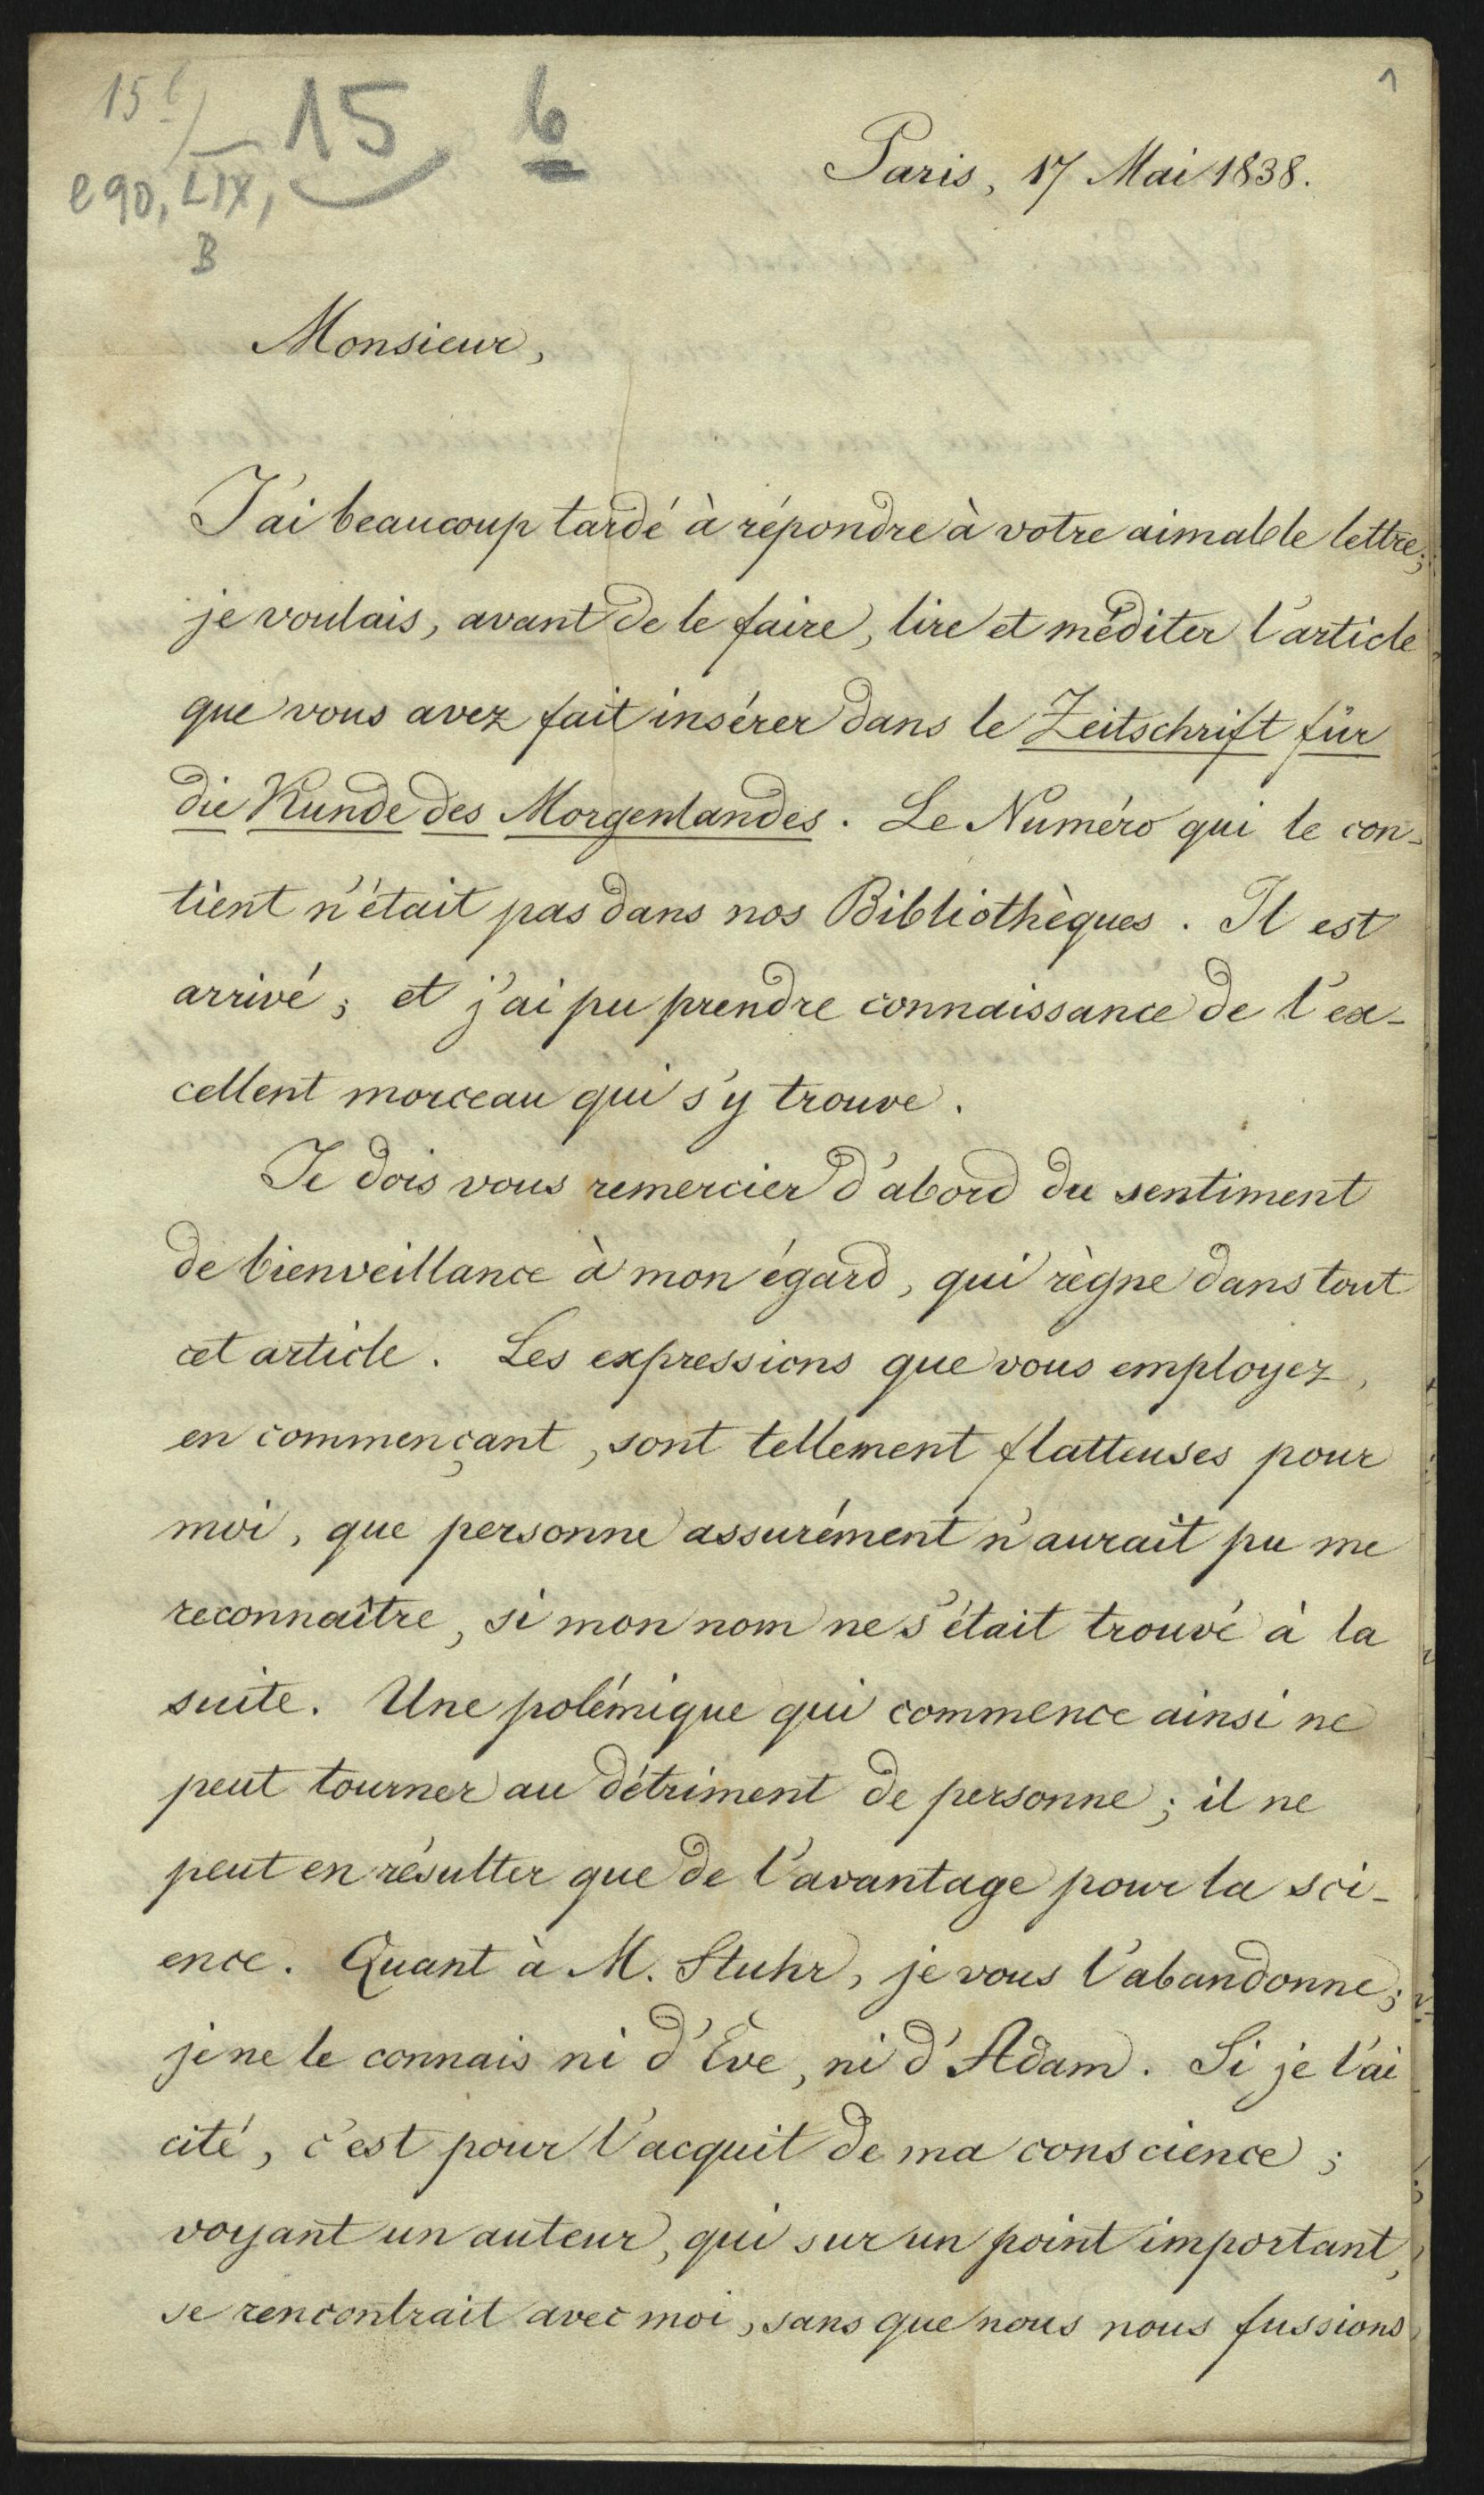 15 6
15 b
1
e 90, LIX,
B
Paris, 17 Mai 1838.
Monsieur,
J'ai beaucoup tardé à répondre à votre aimable lettre;
je voulais, avant de le faire, lire et méditer l'article
que vous avez fait insérer dans le Zeitschrift für
die Kunde des Morgenlandes. Le Numéro qui le con-
tient n'était pas dans nos Bibliothèques. Il est
arrivé; et j'ai pu prendre connaissance de l'ex-
cellent morceau qui s'y trouve.
Je dois vous remercier d'abord du sentiment
de bienveillance à mon égard, qui règne dans tout
cet article. Les expressions que vous employez,
en commençant, sont tellement flatteuses pour
moi, que personne assurément n'aurait pu me
reconnaître, si mon nom ne s'était trouvé à la
suite. Une polémique qui commence ainsi ne
peut tourner au détriment de personne; il ne
peut en résulter que de l'avantage pour la sci-
ence. Quant à M. Stuhr, je vous l'abandonne;
je ne le connais ni d'Ève, ni d'Adam. Si je l'ai
cité, c'est pour l'acquit de ma conscience;
voyant un auteur, qui sur un point important,
se rencontrait avec moi, sans que nous nous fussions